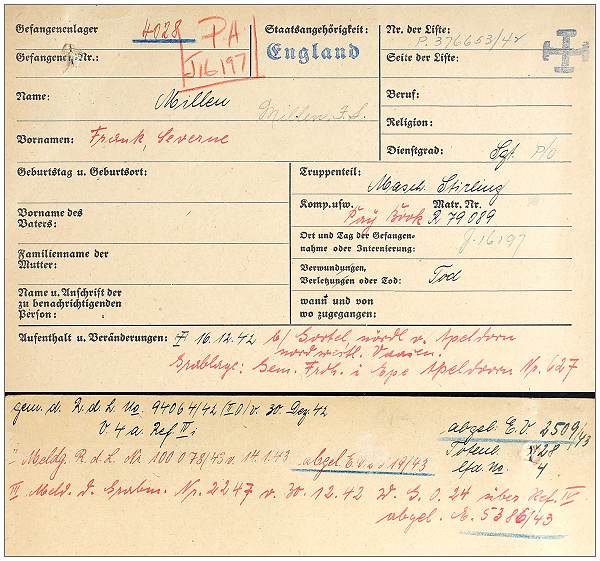 Gefangenenlager 4028 PA Staatsangehörigkeit: Nr. der Liste:
P. 376653/42
Gefangenen-Nr.: J16197 England Seite der Liste:
Name: Millen Millen, F.S. Beruf:
Religion:
Vornamen: Frank, Severne
Dienstgrad: Sgt. P/O
Geburtstag u. Geburtsort: Truppenteil:
Masch. Stirling
Komp. usw. Matr. Nr.
Pay Book R 79089
Vorname des
Vaters:
Ort und Tag der Gefangen-
nahme oder Internierung: J.16197
Familienname der
Mutter:
Verwundungen,
Verletzungen oder Tod: Tod
Name u. Anschrift der
zu benachrichtigenden
Person:
wann und von
wo zugegangen:
Aufenthalt u. Veränderungen: 16.12.42 b/ Gortel, nördl. v. Apeldorn
nordwestl. Vaasen.
Grablage: Gem. Frdh. i Epe Apeldoorn Np. 627
gem. d. R.d.L. No. 94064/42 (II0) v. 30 Dez 42
V. 4 a. Ref III
abgel. E.V. 2509/43
Totenl. 128
lfd No. 4
Meldg. R.d.L. Nr. 100078/43 v. 14.1.43 abgel. E.V. 519/43
III Meld. d. Grabm. Np. 2247 v. 30.12.42 W. G. O. 24 über Ref. IV
abgel. E. 5386/43